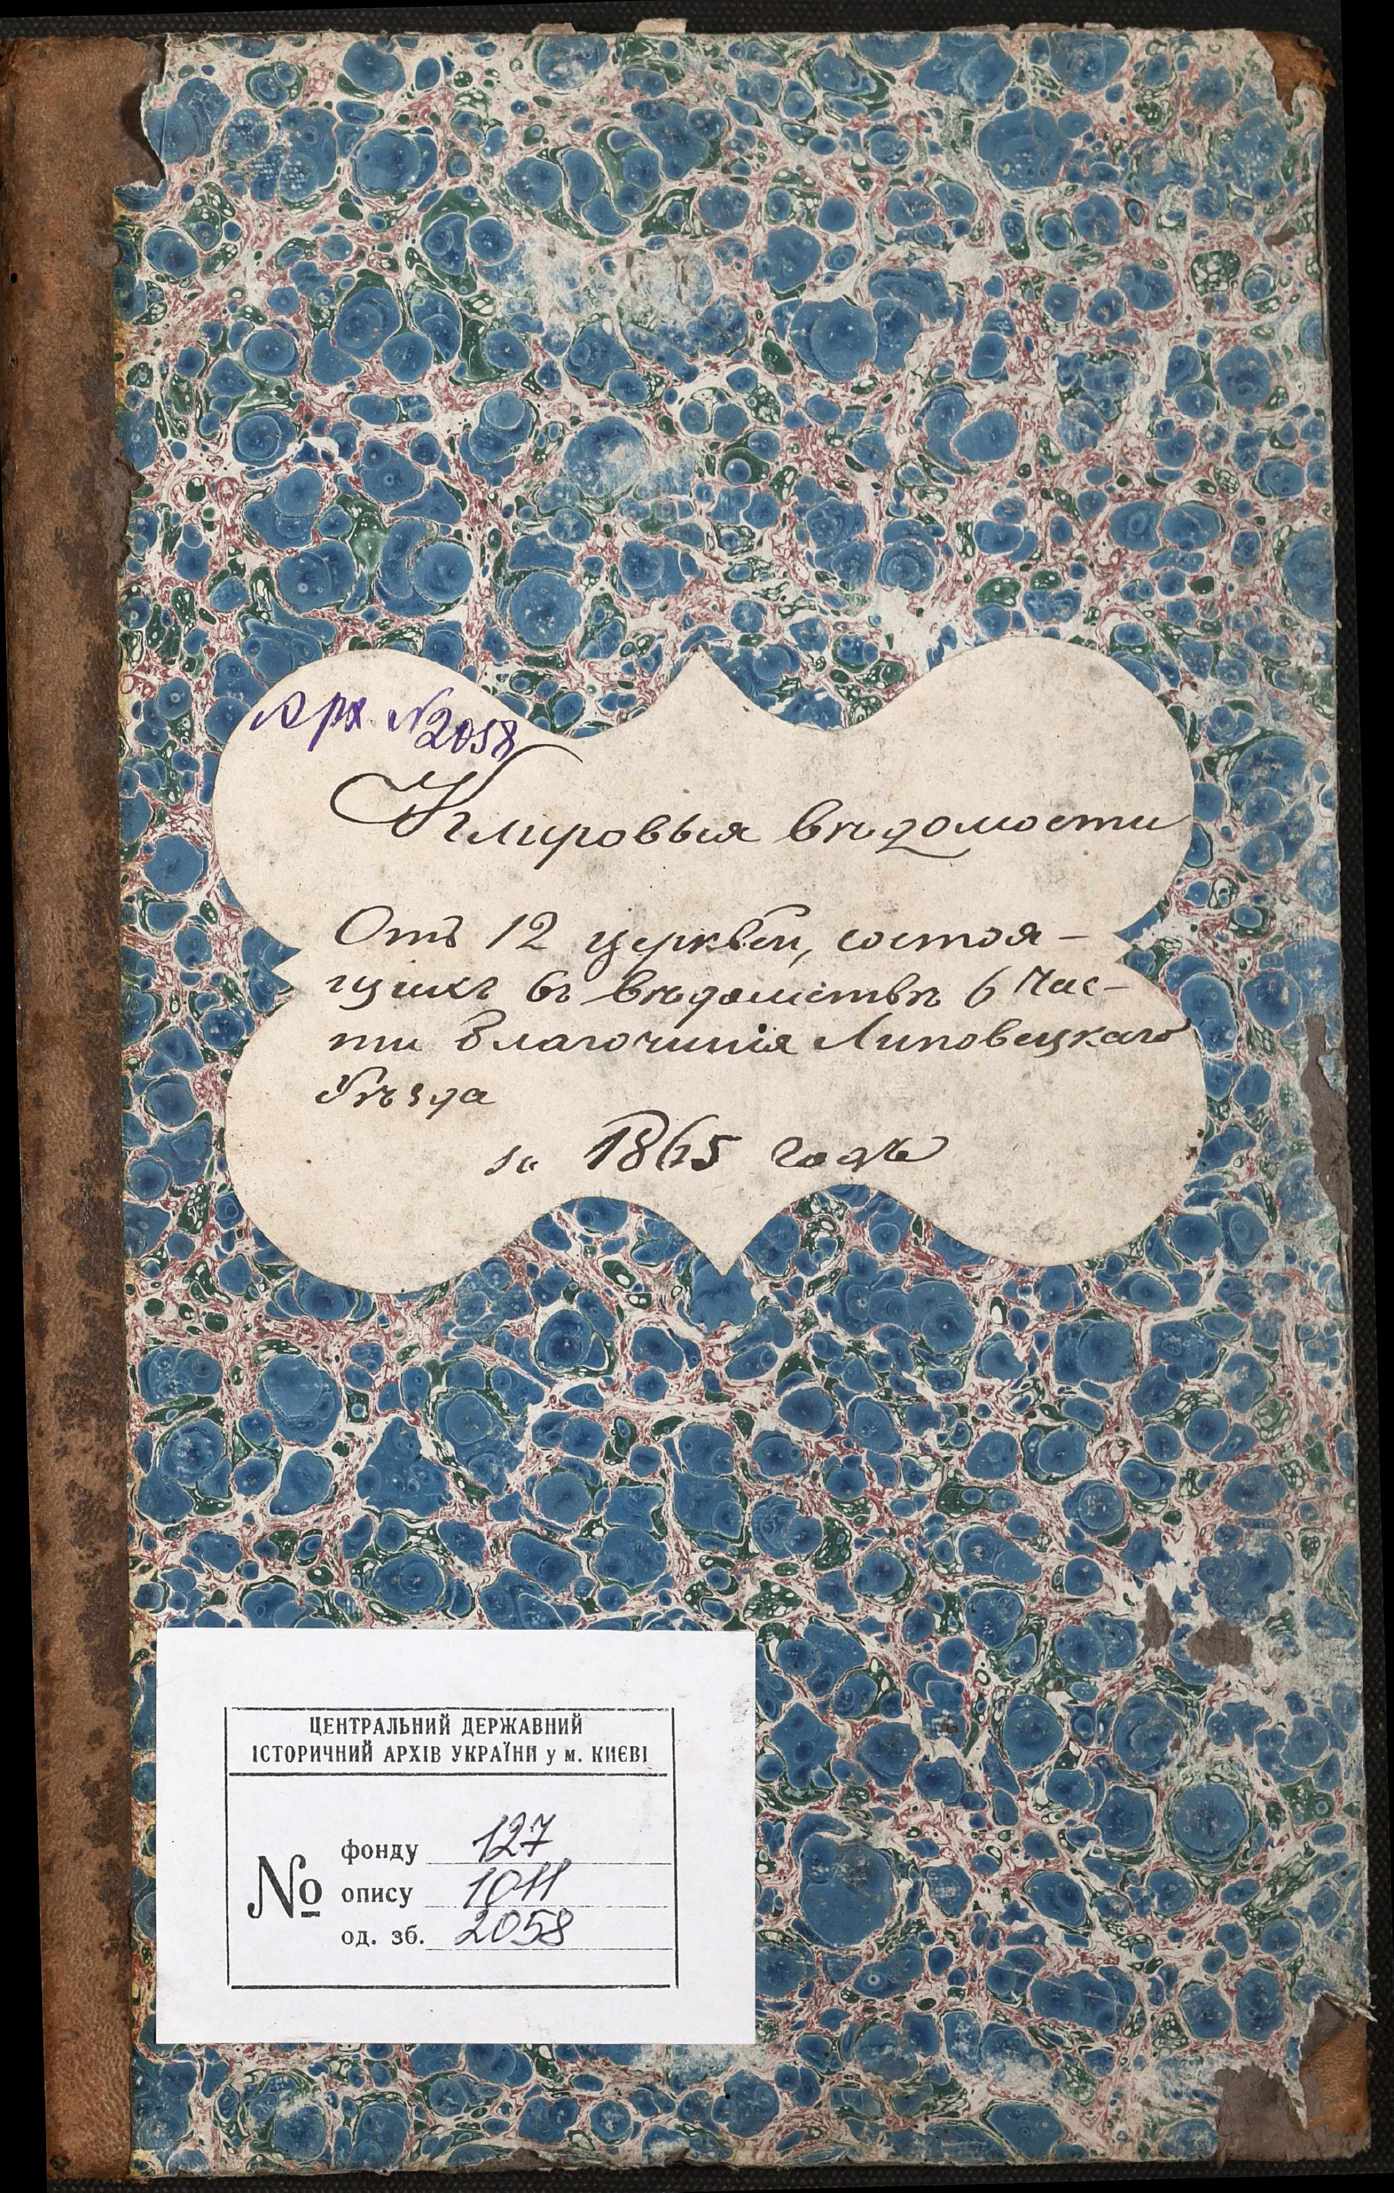 Арх. №2058
Клировыя вѣдомости
Отъ 12 церквей, состоя-
щихъ въ вѣдомствѣ 6 Час-
ти Благочинія Липовецкаго
Уѣзда
за 1865 годъ
ЦЕНТРАЛЬНИЙ ДЕРЖАВНИЙ
ІСТОРИЧНИЙ АРХІВ УКРАЇНИ у м. КИЄВІ
№
фонду 127
опису 1011
од. зб. 2058